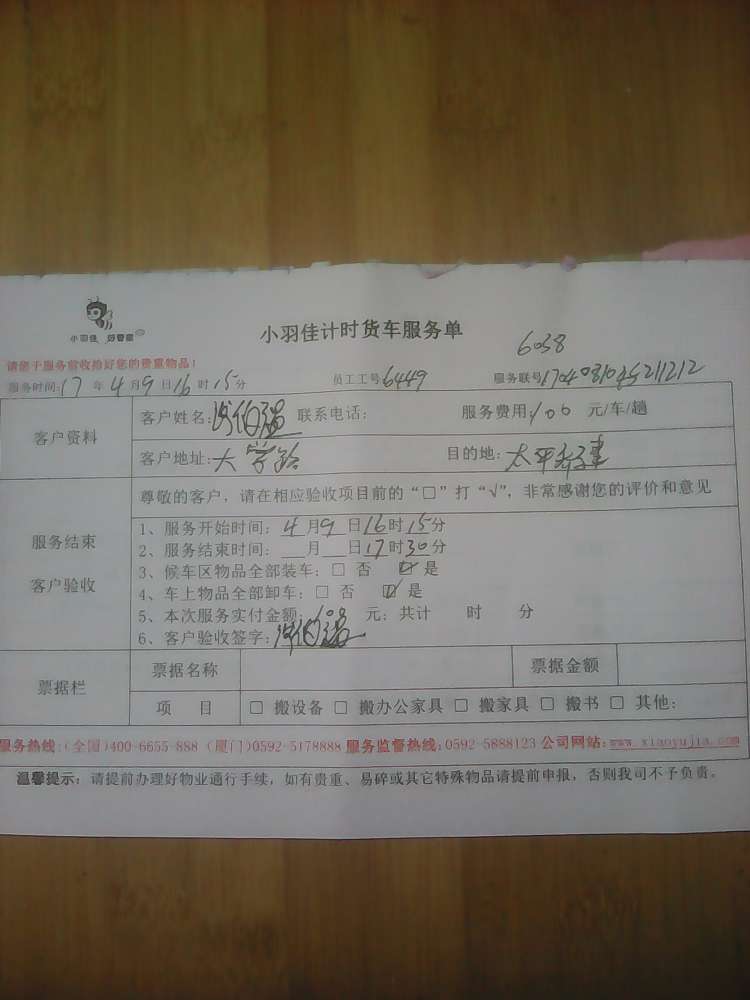 小羽佳 好管家
小羽佳计时货车服务单
6038
请您于服务前收拾好您的贵重物品!
服务时间:17年4月9日16时15分 员工工号6449 服务联号
客户资料
客户姓名: 联系电话: 服务费用:100 元/车/趟
客户地址:大学路 目的地:
尊敬的客户,请在相应验收项目前的“□”打“√”,非常感谢您的评价和意见
服务结束
客户验收
1、服务开始时间:4月9日16时15分
2、服务结束时间:__月__日17时30分
3、候车区物品全部装车:□ 否 ☑ 是
4、车上物品全部卸车:□ 否 ☑ 是
5、本次服务实付金额:100 元;共计 时 分
6、客户验收签字:
票据栏
票据名称 票据金额
项 目 □ 搬设备 □ 搬办公家具 □ 搬家具 □ 搬书 □ 其他:
服务热线:(全国)400-6655-888 (厦门)0592-5178888 服务监督热线:0592-5888123 公司网站:www.xiaoyujia.com
温馨提示:请提前办理好物业通行手续,如有贵重、易碎或其它特殊物品请提前申报,否则我司不予负责。